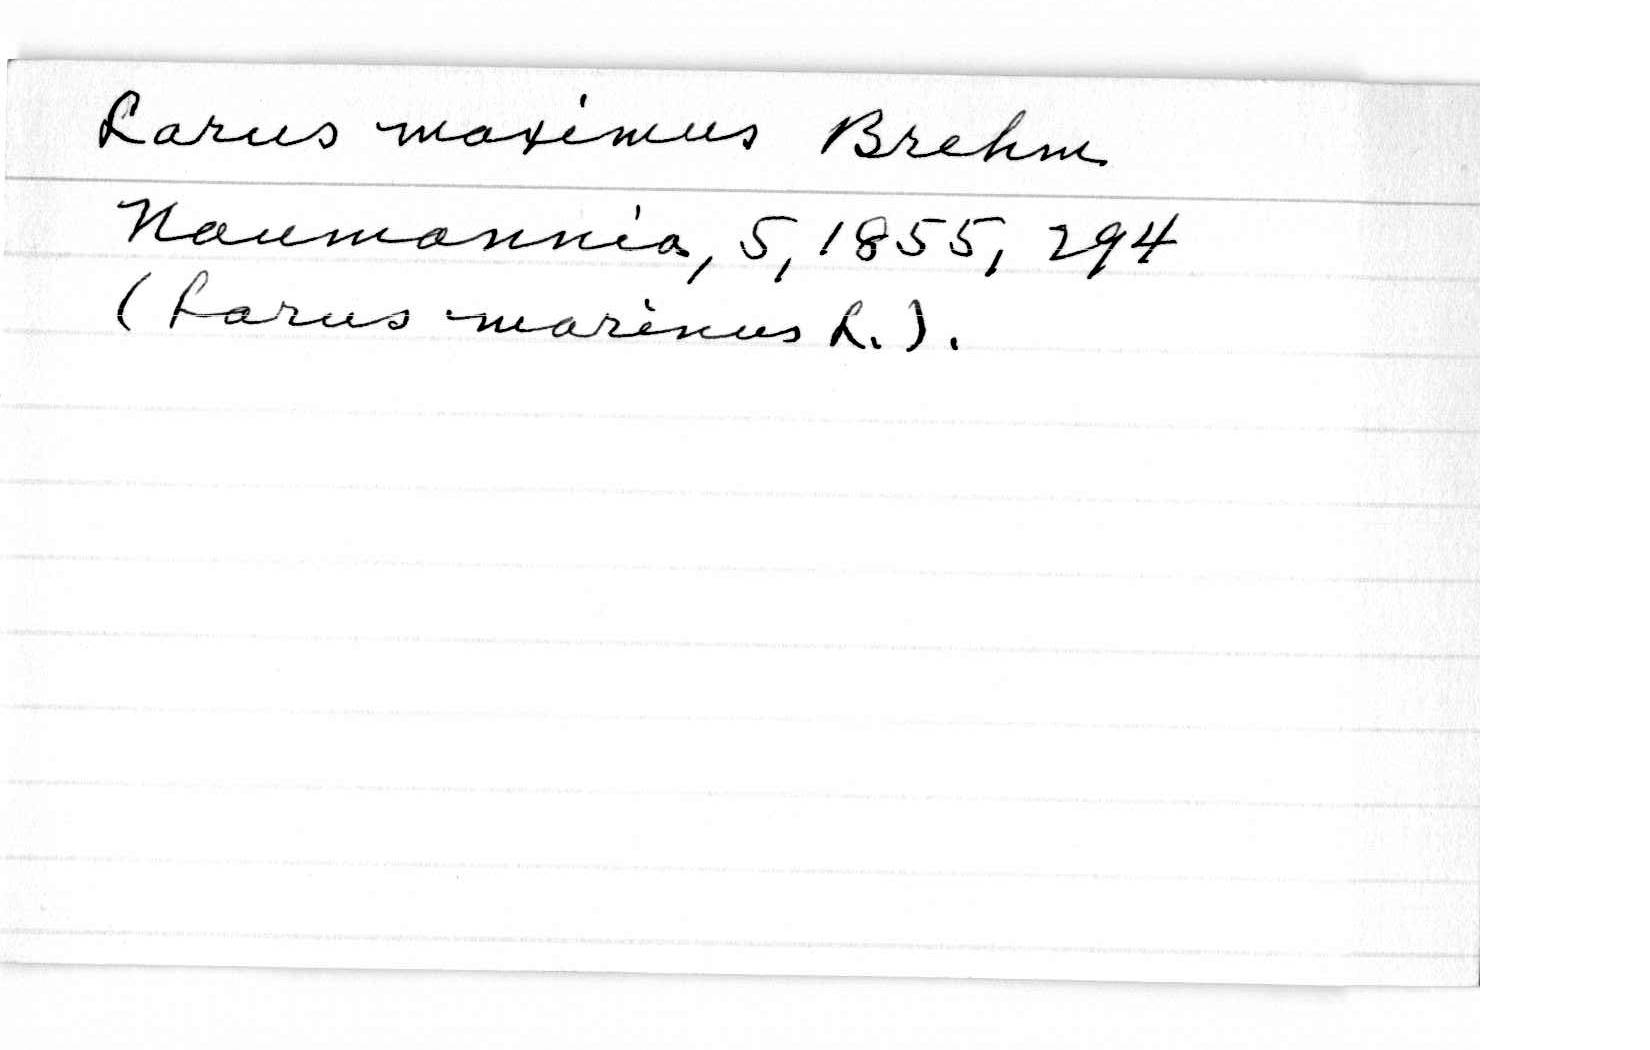 Larus maximus Brehm
Naumannia, 5, 1855, 294
(Larus marinus L.).